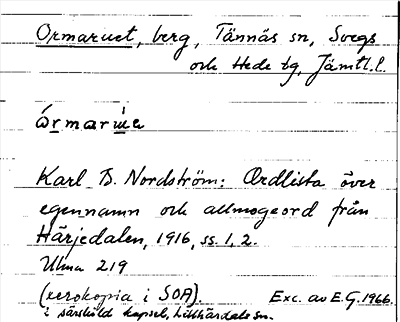 Ormaruet, berg, Tännäs sn, Svegs
och Hede tg, Jämtl.l.
Ormarua
Karl D. Nordström: Ordlista över
egennamn och allmogeord från
Härjedalen, 1916, ss. 1, 2.
Ulma 219
(xerokopia i SOA). Exc. av E.G. 1966.
i särskild kapsel, Lillhärdals sn.